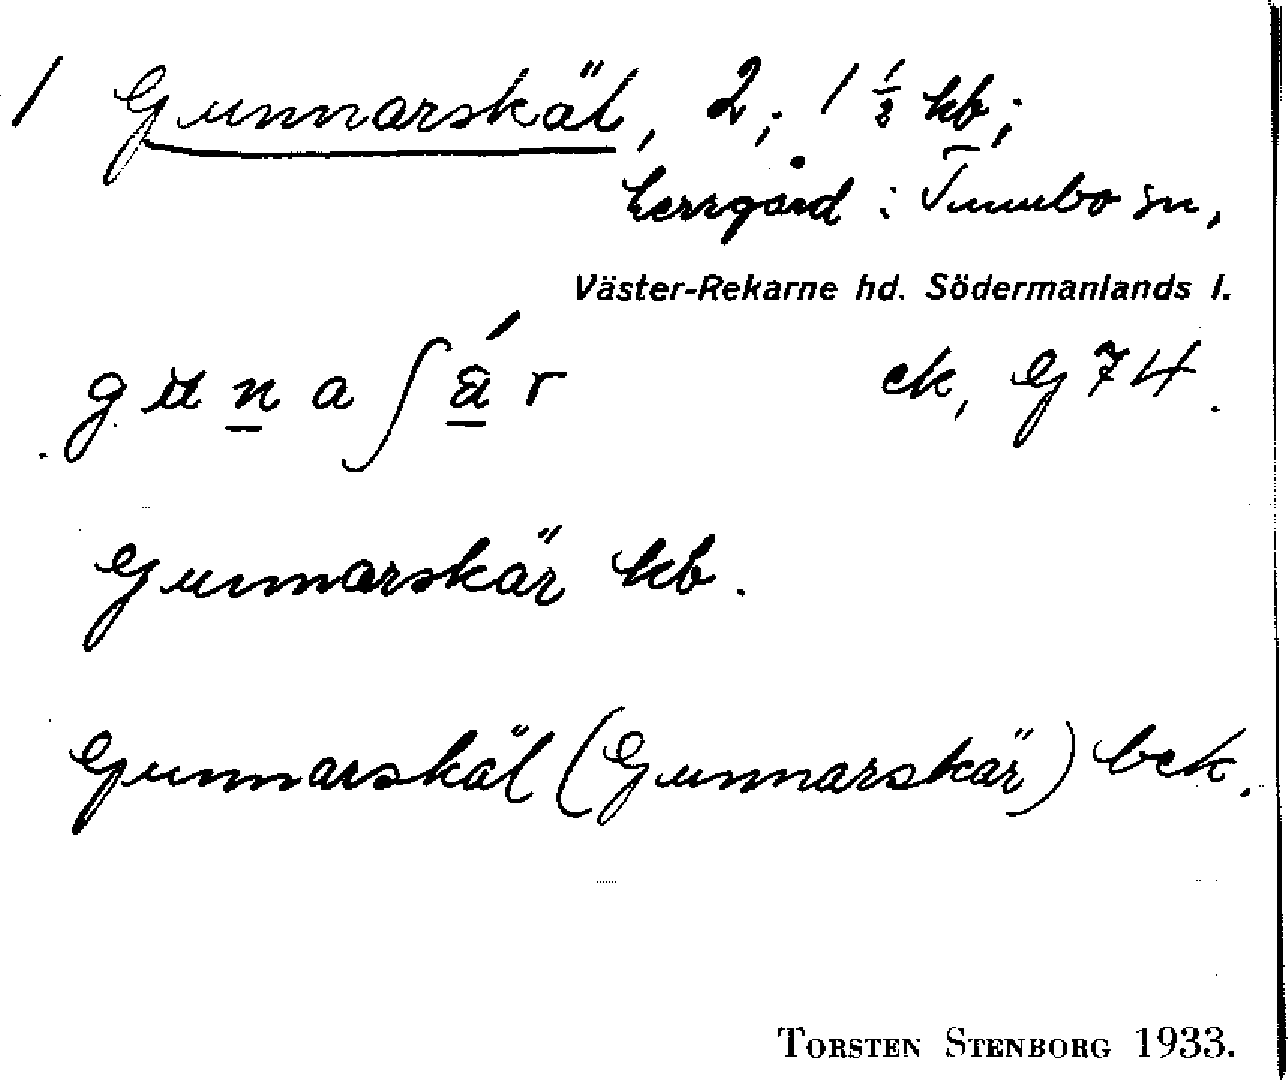 1 Gunnarskäl, 2; 1 ½ kb;
herrgård i Tumbo sn,
Väster-Rekarne hd. Södermanlands l.
ek, G 74.
Gunnarskär kb.
Gunnarskäl (Gunnarskär) bek.
TORSTEN STENBORG 1933.